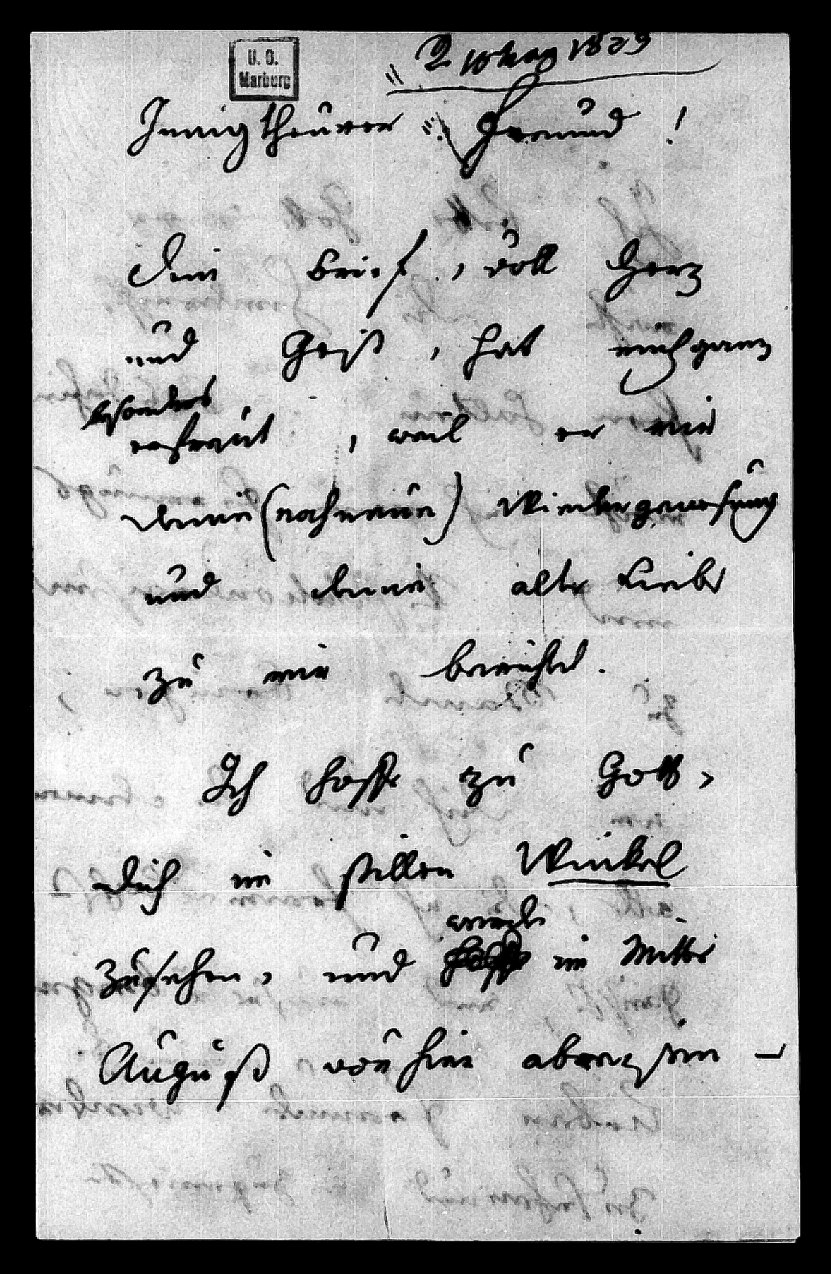 U. B.
Marburg
1829
Innigtheurer Freund!
Dein Brief, voll Herz
und Geist, hat mich ganz
besonders
erfreut, weil er mir
Deine (noch neue) Wiedergenesung
und Deine alte Liebe
zu mir berichtet.
Ich hoffe zu Gott,
Dich im stillen Winkel
zu sehen, und
werde
im Mitte
August von hier abreisen –